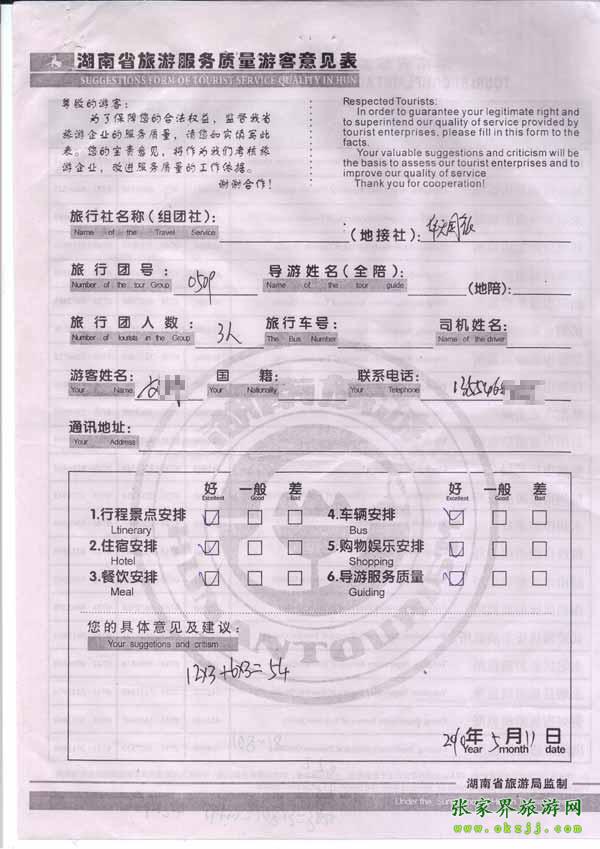 湖南省旅游服务质量游客意见表
SUGGESTIONS FORM OF TOURIST SERVICE QUALITY IN HUN
尊敬的游客:
为了保障您的合法权益，监督我省
旅游企业的服务质量，请您如实填写此
表。您的宝贵意见，将作为我们考核旅
游企业，改进服务质量的工作依据。
谢谢合作！
Respected Tourists:
In order to guarantee your legitimate right and
to superintend our quality of service provided by
tourist enterprises, please fill in this form to the
facts.
Your valuable suggestions and criticism will be
the basis to assess our tourist enterprises and to
improve our quality of service
Thank you for cooperation!
旅行社名称(组团社): (地接社):
Name of the Travel Service
旅行团号: 0509 导游姓名(全陪): (地陪):
Number of the tour Group Name of the tour guide
旅行团人数: 3人 旅行车号: 司机姓名:
Number of tourists in the Group The Bus Number Name of the driver
游客姓名: 国籍: 联系电话:
Your Name Your Nationality Your Telephone
通讯地址:
Your Address
好 一般 差 好 一般 差
Excellent Good Bad Excellent Good Bad
1.行程景点安排 4.车辆安排
Ltinerary Bus
2.住宿安排 5.购物娱乐安排
Hotel Shopping
3.餐饮安排 6.导游服务质量
Meal Guiding
您的具体意见及建议:
Your suggetions and critism
12x3+6x3=54
2010年5月11日
Year month date
湖南省旅游局监制
Under the
张家界旅游网
www.okzjj.com